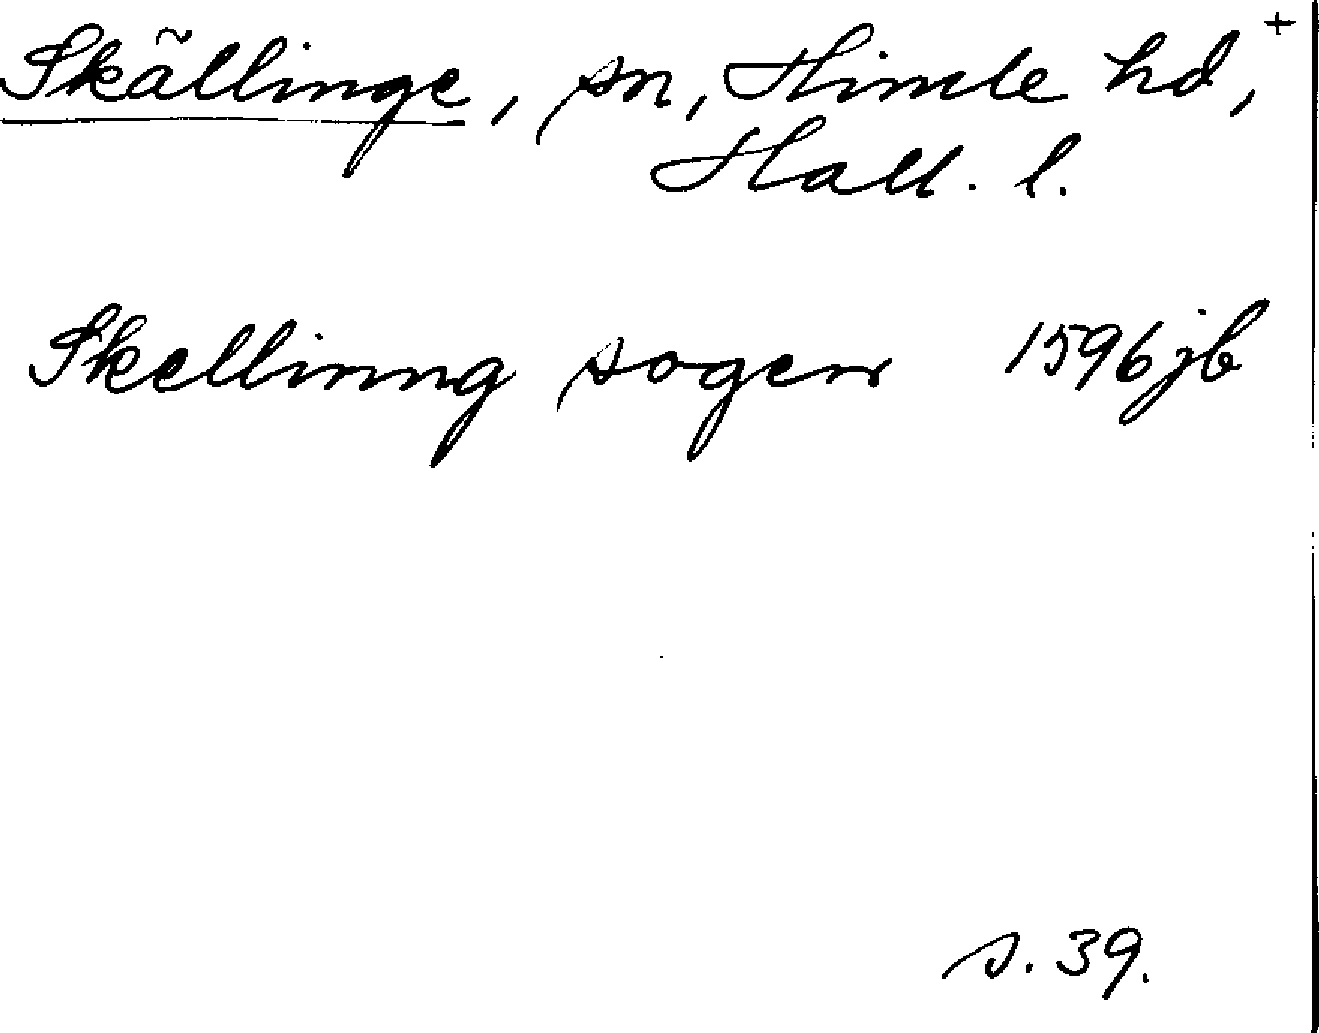 Skällinge, sn, Himle hd, +
Hall. l.
Skellinng sogen 1596 jb
s. 39.